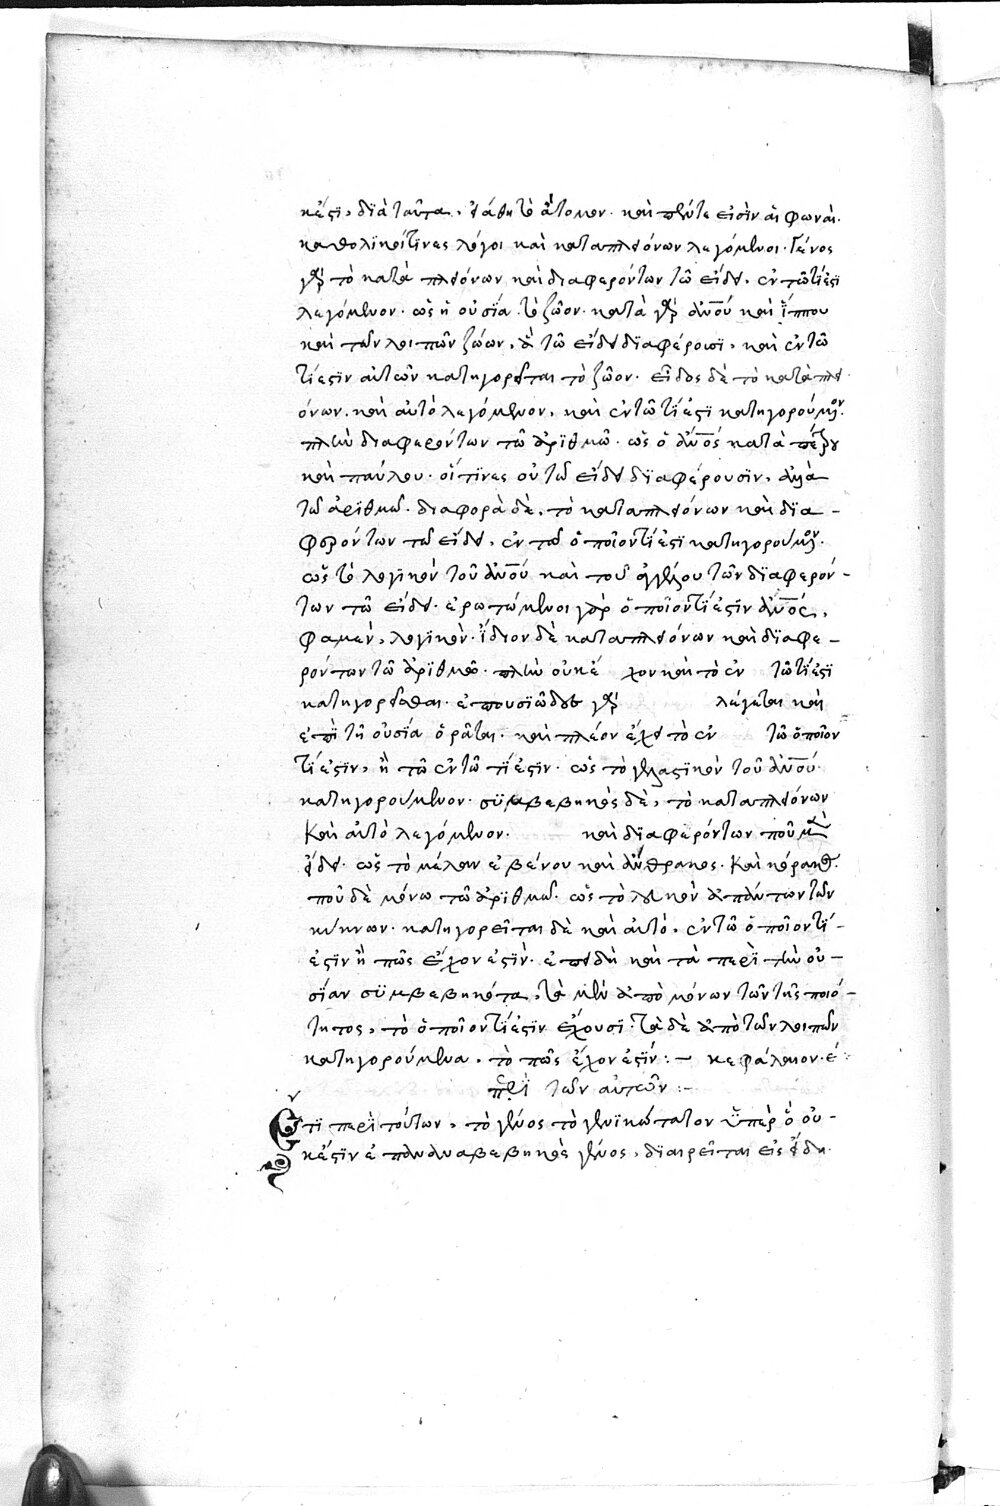 κέστι, διὰ ταῦτα, εἰλήφθη τὸ ἄτομον. καὶ πέντε εἰσὶν αἱ φωναὶ.
καθολικοί τινες λόγοι καὶ κατὰ πλειόνων λεγόμενοι. Γένος
γὰρ τὸ κατὰ πλειόνων καὶ διαφερόντων τῶ εἴδει, ἐν τῶ τί ἐστι
λεγόμενον. ὡς ἡ οὐσία τὸ ζῶον. κατὰ γὰρ ἀνου καὶ ἵππου
καὶ τῶν λοιπῶν ζώων, ἃ τῶ εἴδει διαφέρουσι, καὶ ἐν τῶ
τί ἐστιν αὐτῶν κατηγορεῖται τὸ ζῶον. εἶδος δὲ τὸ κατὰ πλει
όνων. καὶ αὐτὸ λεγόμενον, καὶ ἐν τῶ τί ἐστι κατηγορούμενον.
πλὴν διαφερόντων τῶ ἀριθμῶ. ὡς ὁ ἀνος κατὰ πέτρου
καὶ παύλου. οἵ τινες οὐ τῶ εἴδει διαφέρουσιν, ἀλλὰ
τῶ ἀριθμῶ. διαφορὰ δὲ, τὸ κατὰ πλειόνων καὶ δια-
φερόντων τῶ εἴδει, ἐν τῶ ὁποῖον τί ἐστι κατηγορούμενον.
ὡς τὸ λογικὸν τοῦ ἀνου καὶ τοῦ ἀγγέλου τῶν διαφερόν-
των τῶ εἴδει. ἐρωτώμενοι γὰρ ὁποῖον τί ἐστιν ἀνος,
φαμὲν, λογικὸν. ἴδιον δὲ κατὰ πλειόνων καὶ διαφε-
ρόντων τῶ ἀριθμῶ. πλὴν οὐκ ἔχον καὶ τὸ ἐν τῶ τί ἐστι
κατηγορεῖσθαι. ἐπουσιῶδες γὰρ λέγεται καὶ
ἐπὶ τῆ οὐσία ὁρᾶται. καὶ πλέον ἔχει τὸ ἐν τῶ ὁποῖον
τί ἐστιν, ἢ τῶ ἐν τῶ τί ἐστιν. ὡς τὸ γελαστικὸν τοῦ ἀνου
κατηγορούμενον. συμβεβηκὸς δὲ, τὸ κατὰ πλειόνων
Καὶ αὐτὸ λεγόμενον. καὶ διαφερόντων ποῦ μὲν
εἴδει. ὡς τὸ μέλαν ἐβένου καὶ ἄνθρακος. Καὶ κόρακος.
ποῦ δὲ μόνω τῶ ἀριθμῶ. ὡς τὸ λευκὸν ἁπάντων τῶν
κύκνων. κατηγορεῖται δὲ καὶ αὐτὸ, ἐν τῶ ὁποῖον τί-
ἐστιν ἢ πῶς ἔχον ἐστιν. ἐπειδὴ καὶ τὰ περὶ τὴν οὐ-
σίαν συμβεβηκότα, τὰ μὲν ἀπὸ μόνων τῶν τῆς ποιό-
τητος, τὸ ὁποῖον τί ἐστιν ἔχουσι. τὰ δὲ ἀπὸ τῶν λοιπῶν
κατηγορούμενα, τὸ πῶς ἔχον ἐστίν:- κεφάλαιον. έ:
περὶ τῶν αὐτῶν:-
Ἔτι περὶ τούτων, τὸ γένος τὸ γενικώτατον ὕπερ ὃ οὐ-
κ ἔστιν ἐπαναβεβηκὸς γένος, διαιρεῖται εἰς εἴδη.